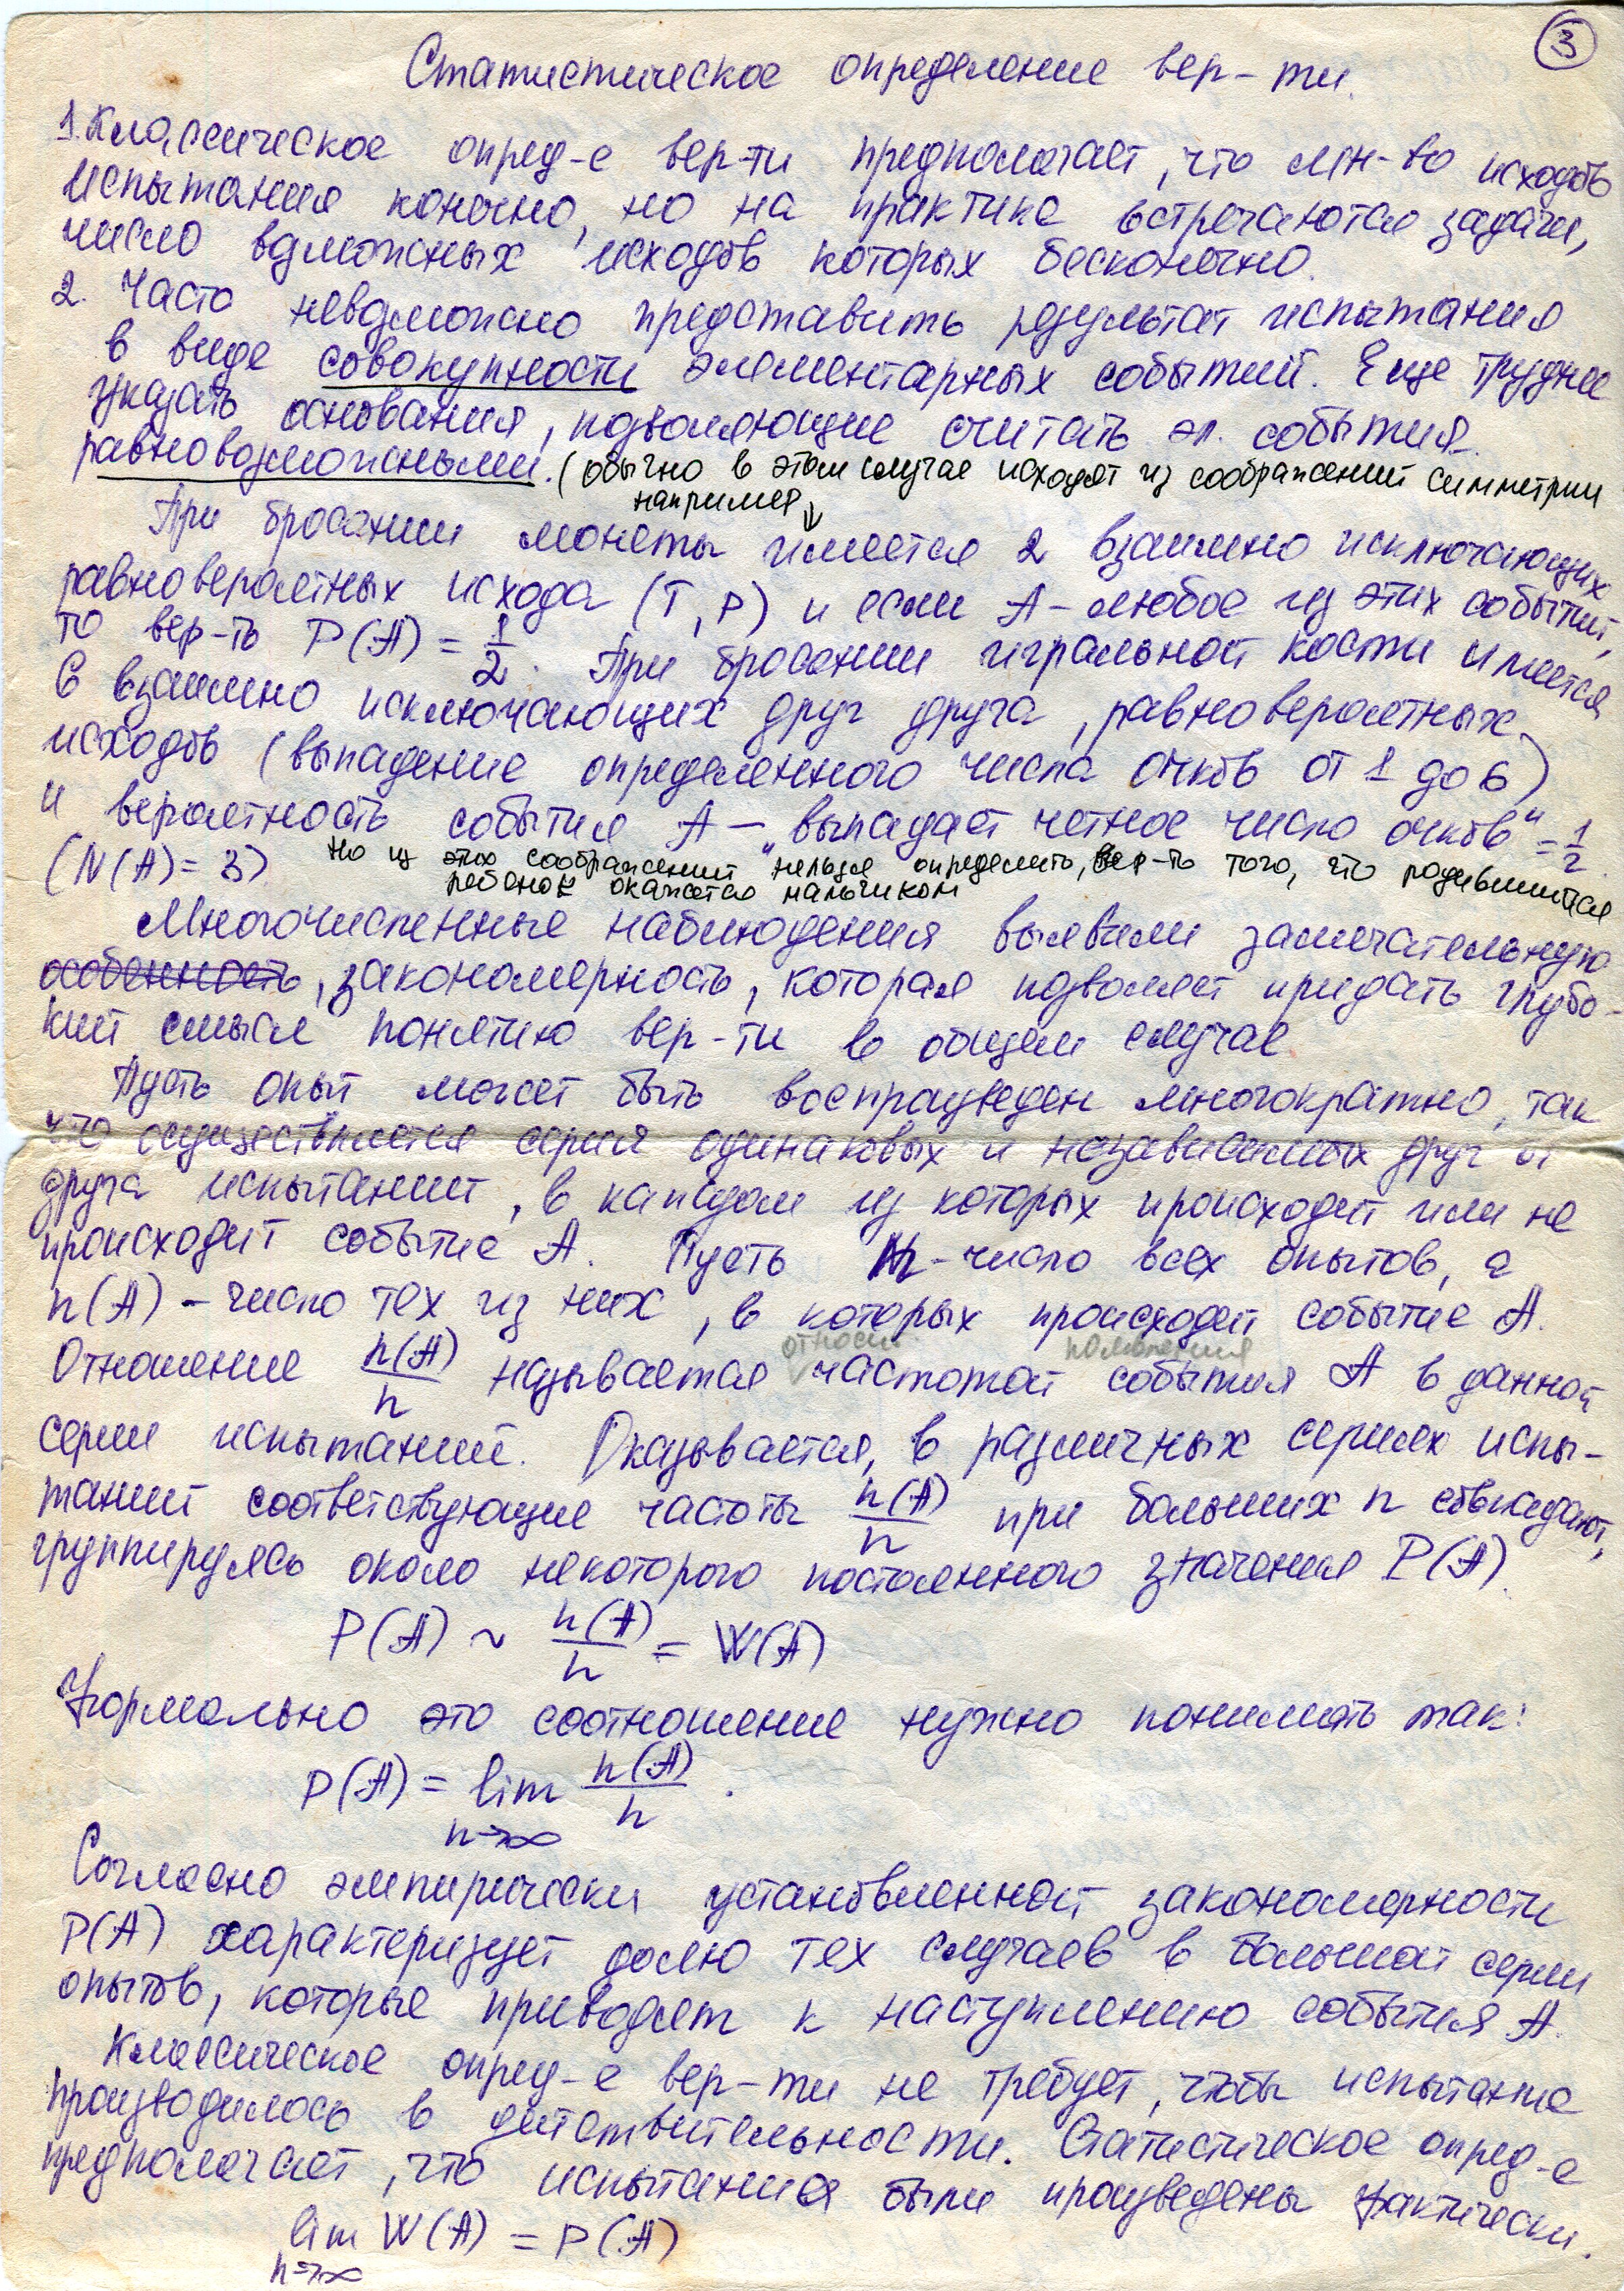 3
Статистическое определение вер-ти.
1. Классическое опред-е вер-ти предполагает, что мн-во исходов
испытания конечно, но на практике встречаются задачи,
число возможных исходов которых бесконечно.
2. Часто невозможно представить результат испытания
в виде совокупности элементарных событий. Еще труднее
указать основания, позволяющие считать эл. события
равновозможными. (обычно в этом случае исходят из соображений симметрии
например ↓
При бросании монеты имеется 2 взаимно исключающих
равновероятных исхода (Г, Р) и если A – любое из этих событий,
то вер-ть P(A) = 1/2. При бросании игральной кости имеется
6 взаимно исключающих друг друга, равновероятных
исходов (выпадение определенного числа очков от 1 до 6)
и вероятность события A – „выпадает четное число очков“ = 1/2.
(N(A) = 3) но из этих соображений нельзя определить, вер-ть того, что родившийся
ребенок окажется мальчиком
Многочисленные наблюдения выявили замечательную
особенность, закономерность, которая позволяет придать глубо-
кий смысл понятию вер-ти в общем случае
Пусть опыт может быть воспроизведен многократно, так
что осуществляется серия одинаковых и независимых друг от
друга испытаний, в каждом из которых происходит или не
происходит событие A. Пусть n - число всех опытов, а
n(A) – число тех из них, в которых происходит событие A.
относит. появления
Отношение n(A)/n называется частотой события A в данной
серии испытаний. Оказывается, в различных сериях испы-
таний соответствующие частоты n(A)/n при больших n совпадают,
группируясь около некоторого постоянного значения P(A).
P(A) ~ n(A)/n = W(A)
Формально это соотношение нужно понимать так:
P(A) = lim n(A)/n.
n→∞
Согласно эмпирически установленной закономерности
P(A) характеризует долю тех случаев в большой серии
опытов, которые приводят к наступлению события A.
Классическое опред-е вер-ти не требует, чтобы испытание
производилось в действительности. Статистическое опред-е
предполагает, что испытания были произведены фактически.
lim W(A) = P(A)
n→∞